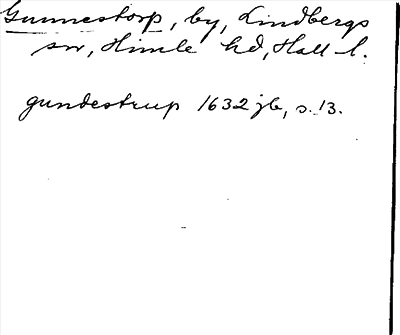 Gunnestorp, by, Lindbergs
sn, Himle hd, Hall. l.
gundestrup 1632 jb, s. 13.